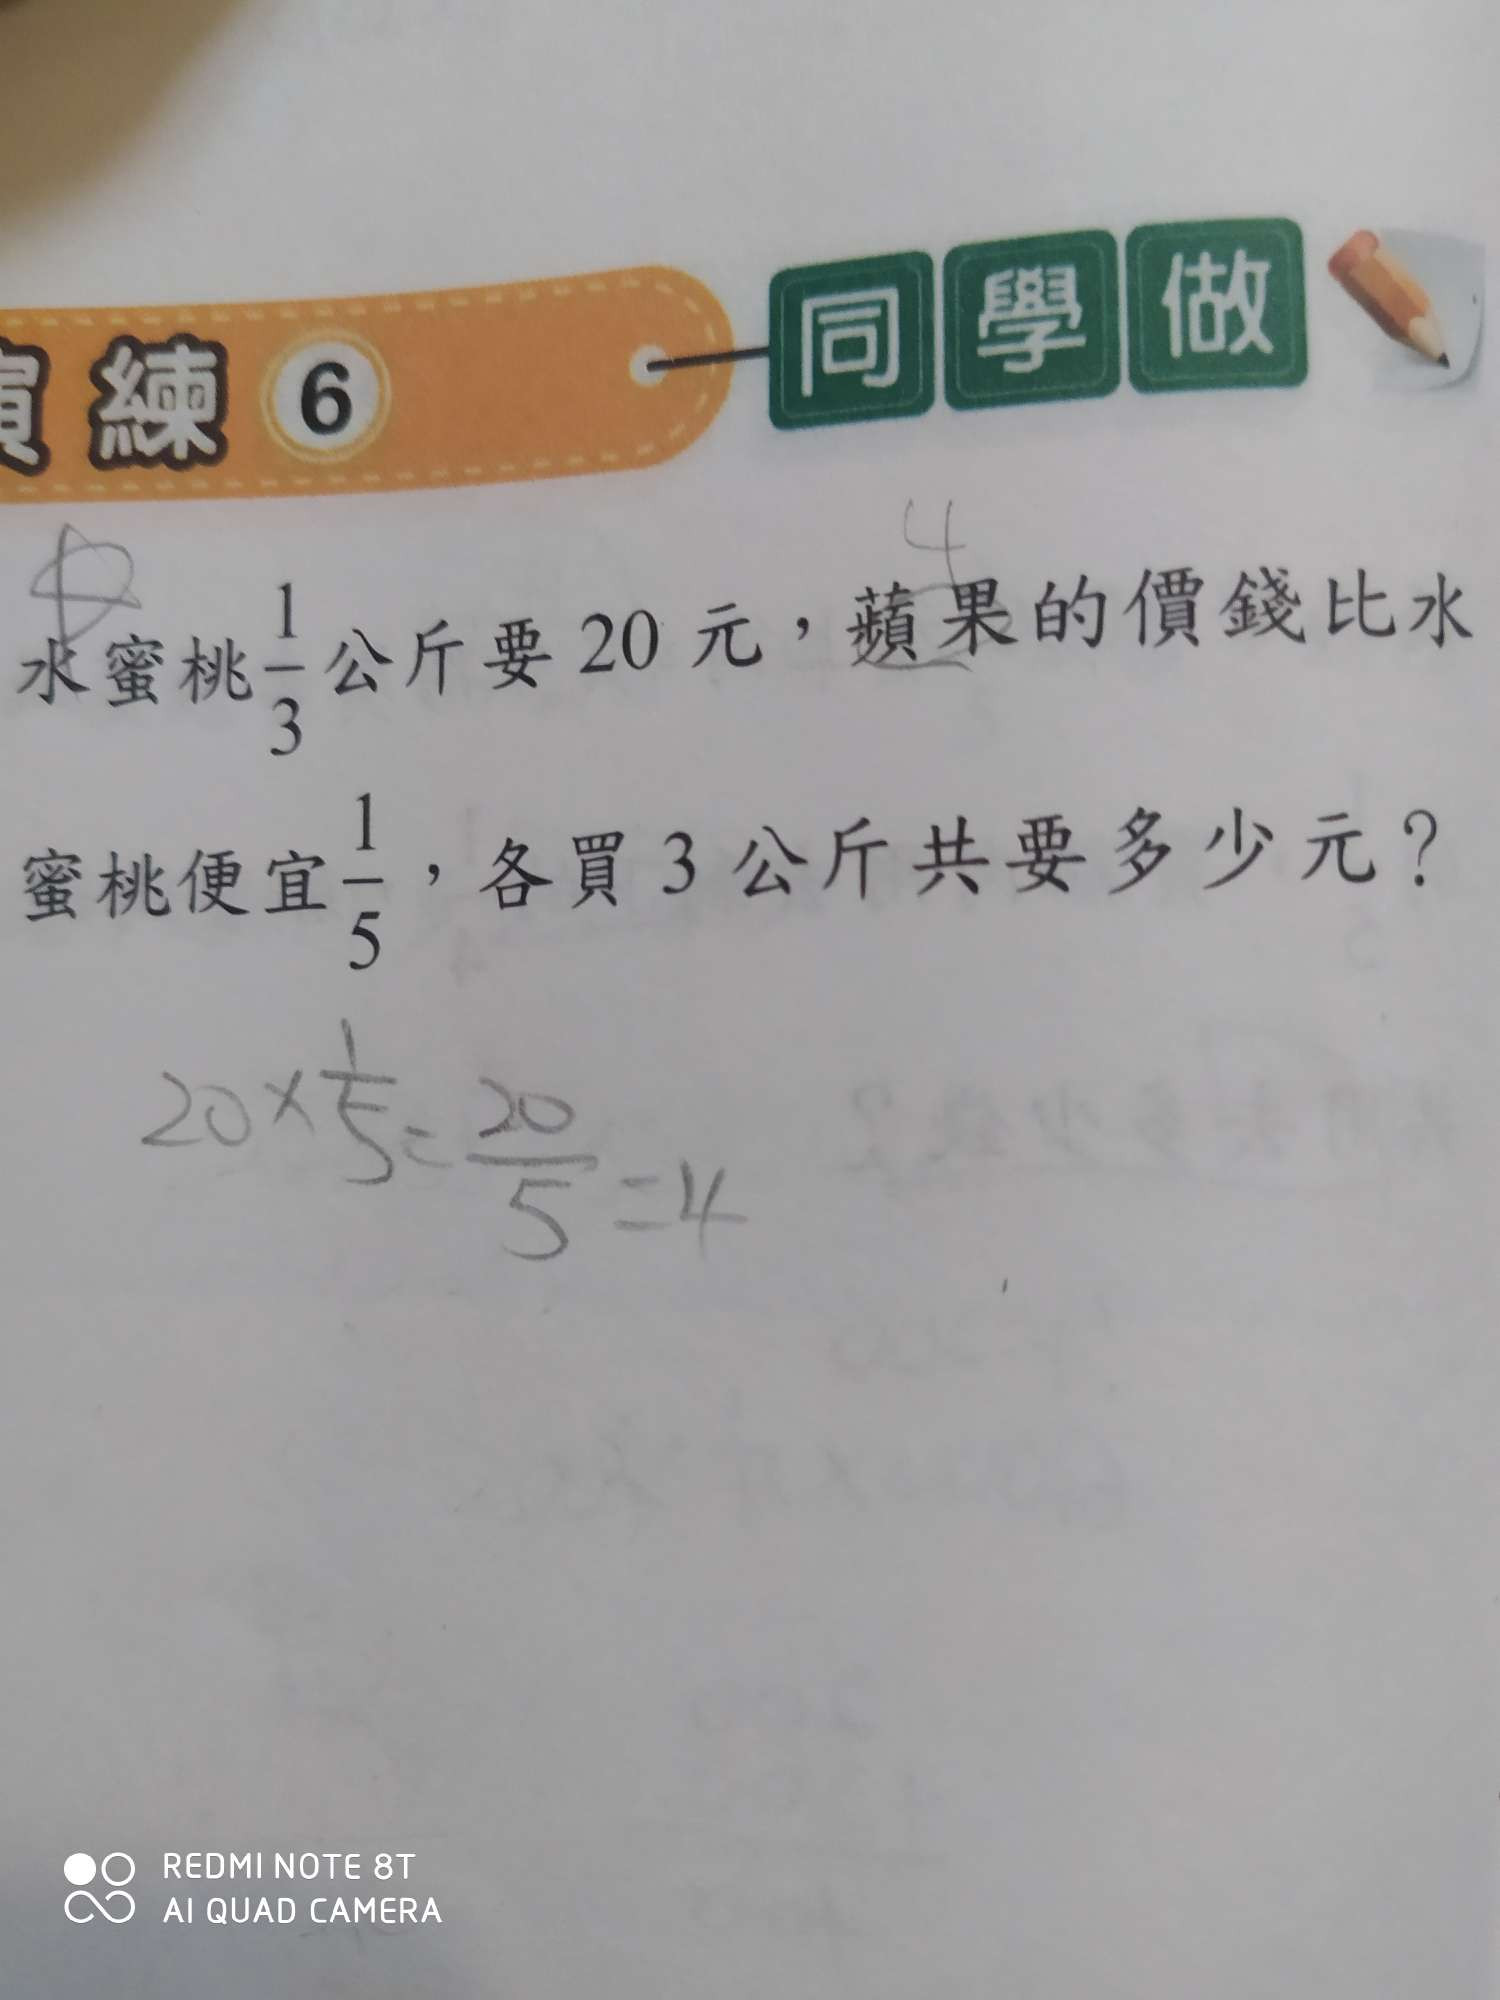 演練 6 同學做
水蜜桃 1/3 公斤要 20 元，蘋果的價錢比水
4
蜜桃便宜 1/5，各買 3 公斤共要多少元？
20 × 1/5 = 20/5 = 4
REDMI NOTE 8T
AI QUAD CAMERA